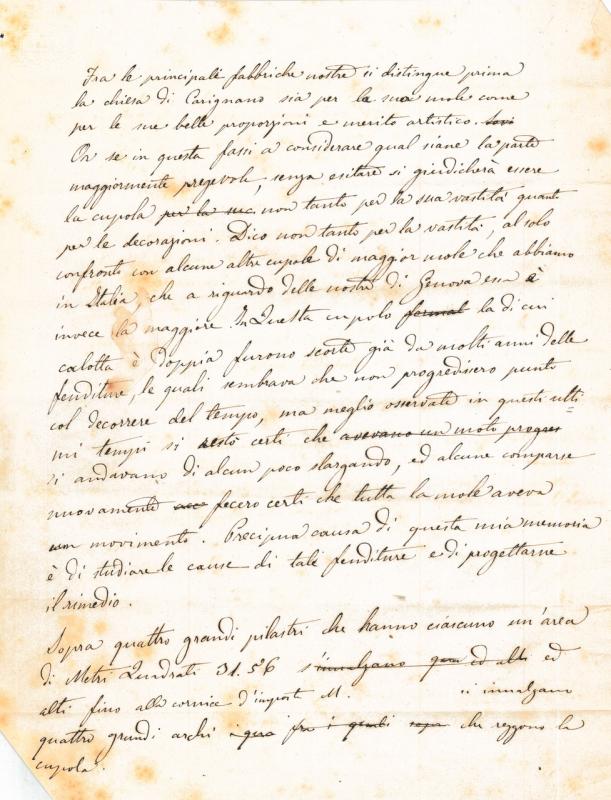 Fra le principali fabbriche nostre si distingue prima
la chiesa di Carignano sia per la sua mole come
per le sue belle proporzioni e merito artistico.
Or se in questa fassi a considerare qual siane la parte
maggiormente pregevole, senza esitare si giudicherà essere
la cupola per la sua non tanto per la sua vastità quanto
per le decorazioni. Dico non tanto per la vastità, al solo
confronto con alcune altre cupole di maggior mole che abbiamo
in Italia, che a riguardo delle nostre di Genova essa è
invece la maggiore. In Questa cupola format la di cui
calotta è doppia furono scorte già da molti anni delle
fenditure, le quali sembrava che non progredissero punto
col decorrere del tempo, ma meglio osservate in questi ulti-
mi tempi si restò certi che avevano un moto progres
si andavano di alcun poco slargando, ed alcune comparse
nuovamente fecero certi che tutta la mole aveva
un movimento. Precipua causa di questa mia memoria
è di studiare le cause di tali fenditure e di progettarne
il rimedio.
Sopra quattro grandi pilastri che hanno ciascuno un'area
di Metri Quadrati 31.56 s'innalzano ed alti ed
alti fino alla cornice d'imposta M. si innalzano
quattro grandi archi fra i quali che reggono la
cupola.